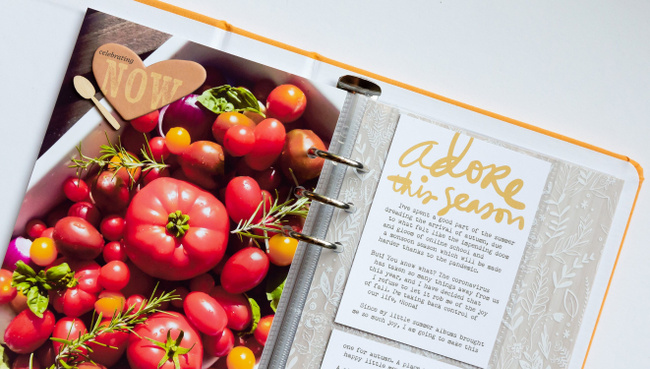 celebrating
NOW
adore
this season
I've spent a good part of the summer
dreading the arrival of autumn, due
to what felt like the impending doom
and gloom of online school and
a monsoon season which will be made
harder thanks to the pandemic.
But you know what? The coronavirus
has taken so many things away from us
this year, and I have decided that
I refuse to let it rob me of the joy
of fall. I'm taking back control of
our life, Hopia!
Since my little summer albums brought
me so much joy, I am going to make this
one for autumn. A place
happy little